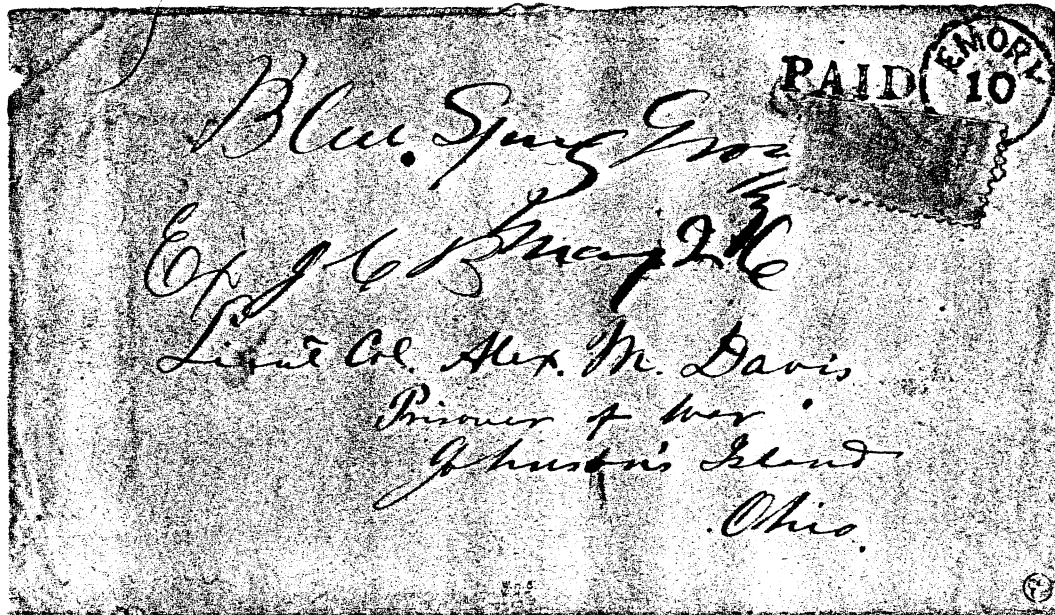 EMORY
PAID 10
Blue Spring Grov
Ex J C B May 26
Lieut Col. Alex. M. Davis
Prisoner of War
Johnson's Island
Ohio.